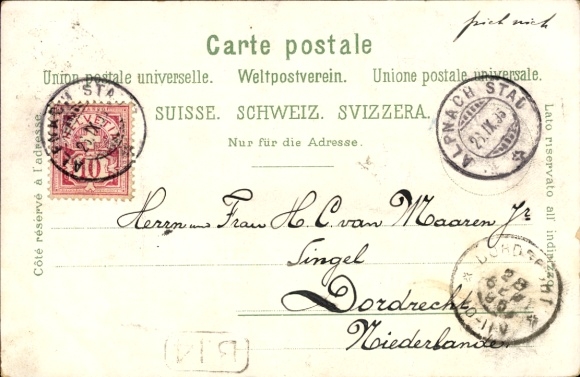 Carte postale
Union postale universelle. Weltpostverein. Unione postale universale.
SUISSE. SCHWEIZ. SVIZZERA.
Nur für die Adresse.
Côté réservé à l'adresse.
Lato riservato all' indirizzo.
HELVETIA
10
ALPNACH STAD
ALPNACH STAD
Herrn und Frau H. C. van Maaren Jr
Singel
Dordrecht
Niederlande
DORDRECHT
B14